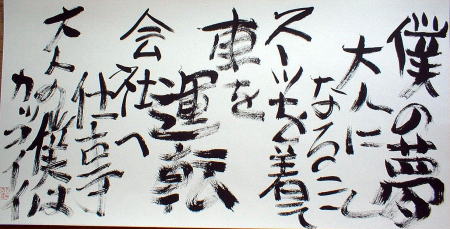 僕の夢
大人に
なること
スーツを着て
車を
運転
会社へ
仕事
大人の僕は
カッコイイ